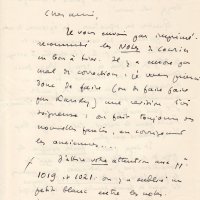 Cher ami,
Je vous envoie par imprimé
recommandé les Notes de Courier
en bon à tirer. Il y a encore pas
mal de corrections. Je vous prierai
donc de faire (ou de faire faire
par ) une révision très
soigneuse : on fait toujours de
nouvelles fautes, en corrigeant
les anciennes...
J'attire votre attention aux pp.
1019 et 1021. on y a oublié un
petit blanc entre les notes.